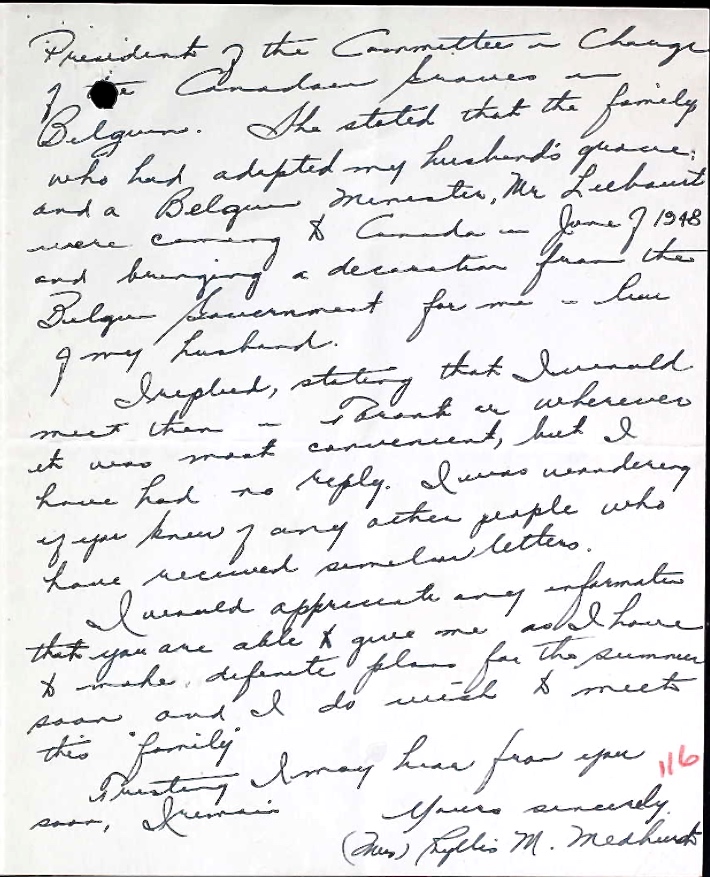 President of the Committee in Charge
of the Canadian Graves in
Belgium. She stated that the family
who had adopted my husband's grave;
and a Belgium Minister, Mr
were coming to Canada in June of 1948
and bringing a decoration from the
Belgian Government for me in lieu
of my husband.
I replied, stating that I would
meet them in or wherever
it was most convenient, but I
have had no reply. I was wondering
if you knew of any other people who
have received similar letters.
I would appreciate any information
that you are able to give me as I have
to make definite plans for the summer
soon and I do wish to meet
this "family"
Trusting I may hear from you
soon, I remain
116
Yours sincerely
(Mrs) Phyllis M. Medhurst